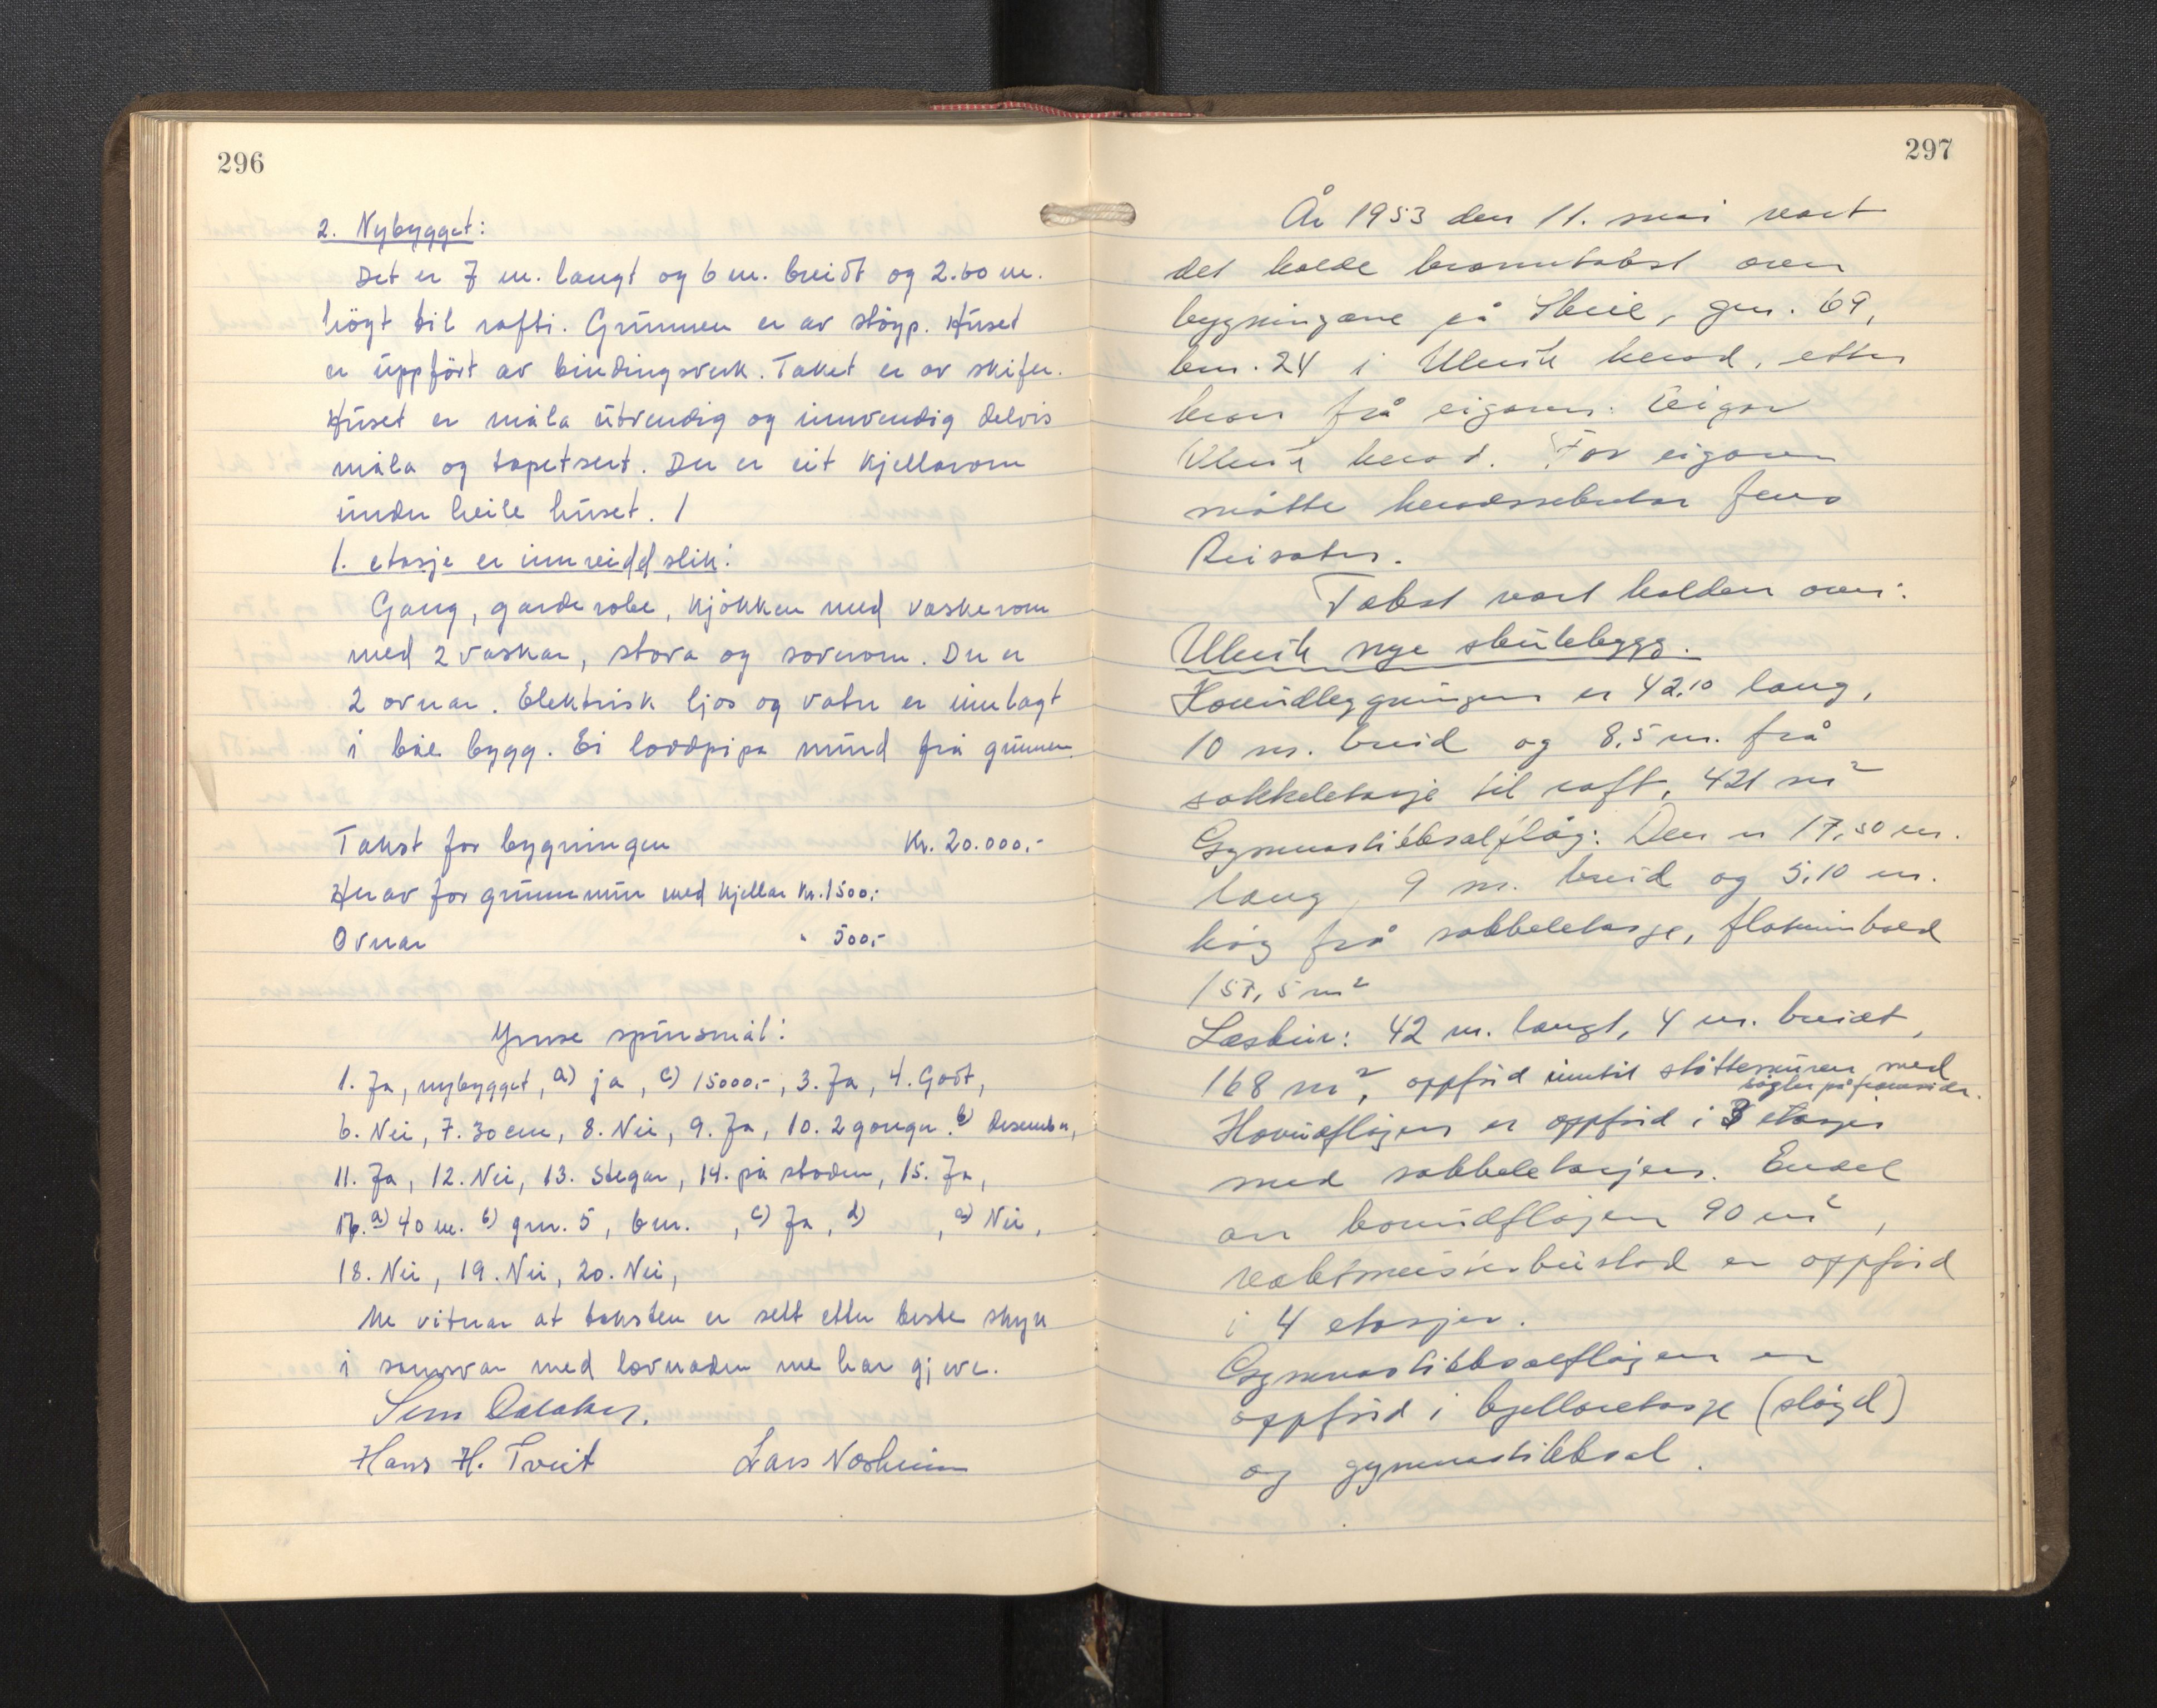 296
2. Nybygget:
Det er 7 m. langt og 6 m. breidt og 2.60 m.
högt til rafti. Grunnen er av stöyp. Huset
er uppfört av bindingsverk. Taket er av skifer.
Huset er måla utvendig og innvendig delvis
måla og tapetsert. Der er eit kjellarrom
under heile huset. /
1. etasje er innreidd slik:
Gang, garderobe, kjökken med vaskerom
med 2 vaskar, stova og soverom. Der er
2 ovnar. Elektrisk ljos og vatn er innlagt
i båe bygg. Ei loddpipa murd frå grunnen.
Takst for bygningen Kr. 20.000,-
Herav for grunnmur med kjellar Kr. 1500,-
Ovnar " 500,-
Ymse spursmål:
1. Ja, nybygget, a) ja, c) 15000,-, 3. Ja, 4. Godt,
6. Nei, 7. 30 cm, 8. Nei, 9. Ja, 10. 2 gonger. b) Desember,
11. Ja, 12. Nei, 13. Stegar, 14. på staden, 15. Ja,
16. a) 40 m. b) gnr. 5, bnr. , c) Ja, d) , e) Nei,
18. Nei, 19. Nei, 20. Nei,
Me vitnar at taksten er sett etter beste skyn
i samsvar med lovnaden me har gjeve.
Hans H. Tveit Lars Nesheim
297
År 1953 den 11. mai vart
det halde branntakst over
bygningane på Skeie, gnr. 69,
bnr. 24 i Ulvik herad, etter
krav frå eigaren. Eigar
Ulvik herad. For eigaren
møtte heradssekretær Jens
Reisæter.
Takst vart halden over:
Ulvik nye skulebygg.
Hovudbygningen er 42.10 lang,
10 m. breid og 8,5 m. frå
sokkeletasje til raft, 421 m²
Gymnastikksalfløy: Den er 17,50 m.
lang, 9 m. breid og 5,10 m.
høg frå sokkeletasje, flateinnhald
157,5 m²
Leskur: 42 m. langt, 4 m. breidt,
168 m², oppførd inntil støttemuren med
søyler på framsida.
Hovudfløyen er oppførd i 3 etasjer
med sokkeletasjen. Endel
av hovudfløyen 90 m²,
vaktmeisterbustad er oppførd
i 4 etasjer.
Gymnastikksalfløyen er
oppførd i kjellaretasje (sløyd)
og gymnastikksal.